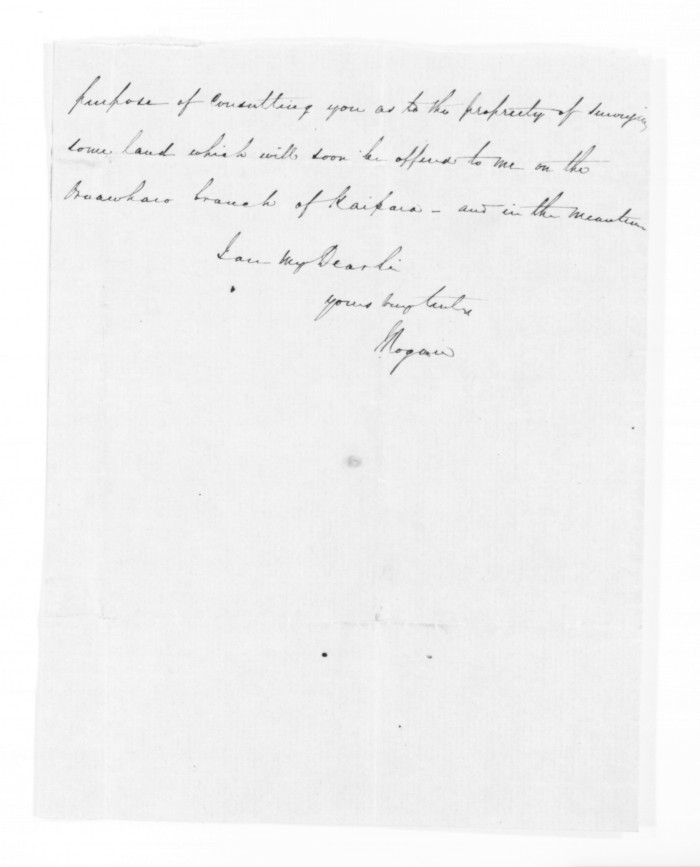 purpose of consulting you as to the propriety of surveying
some land which will soon be offered to me on the
Oruawharo branch of Kaipara - and in the meantime
I am My Dear Sir
yours very truly
Rogan